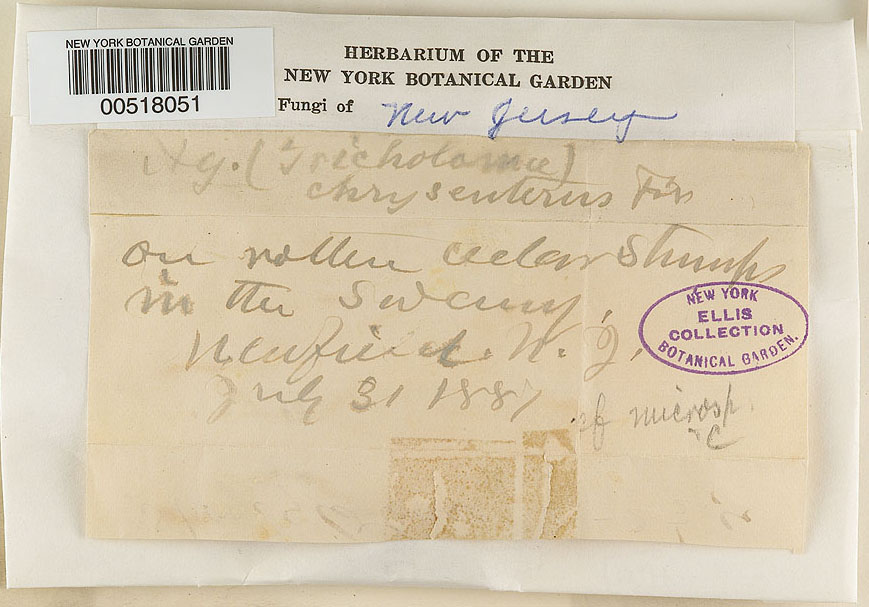 NEW YORK BOTANICAL GARDEN
00518051
HERBARIUM OF THE
NEW YORK BOTANICAL GARDEN
Fungi of New Jersey
Ag. (Tricholoma)
chrysenterus
on rotten cedar stumps
in the Swamp,
Newfield. N. J.
July 31 1887
NEW YORK
ELLIS
COLLECTION
BOTANICAL GARDEN.
microsp.